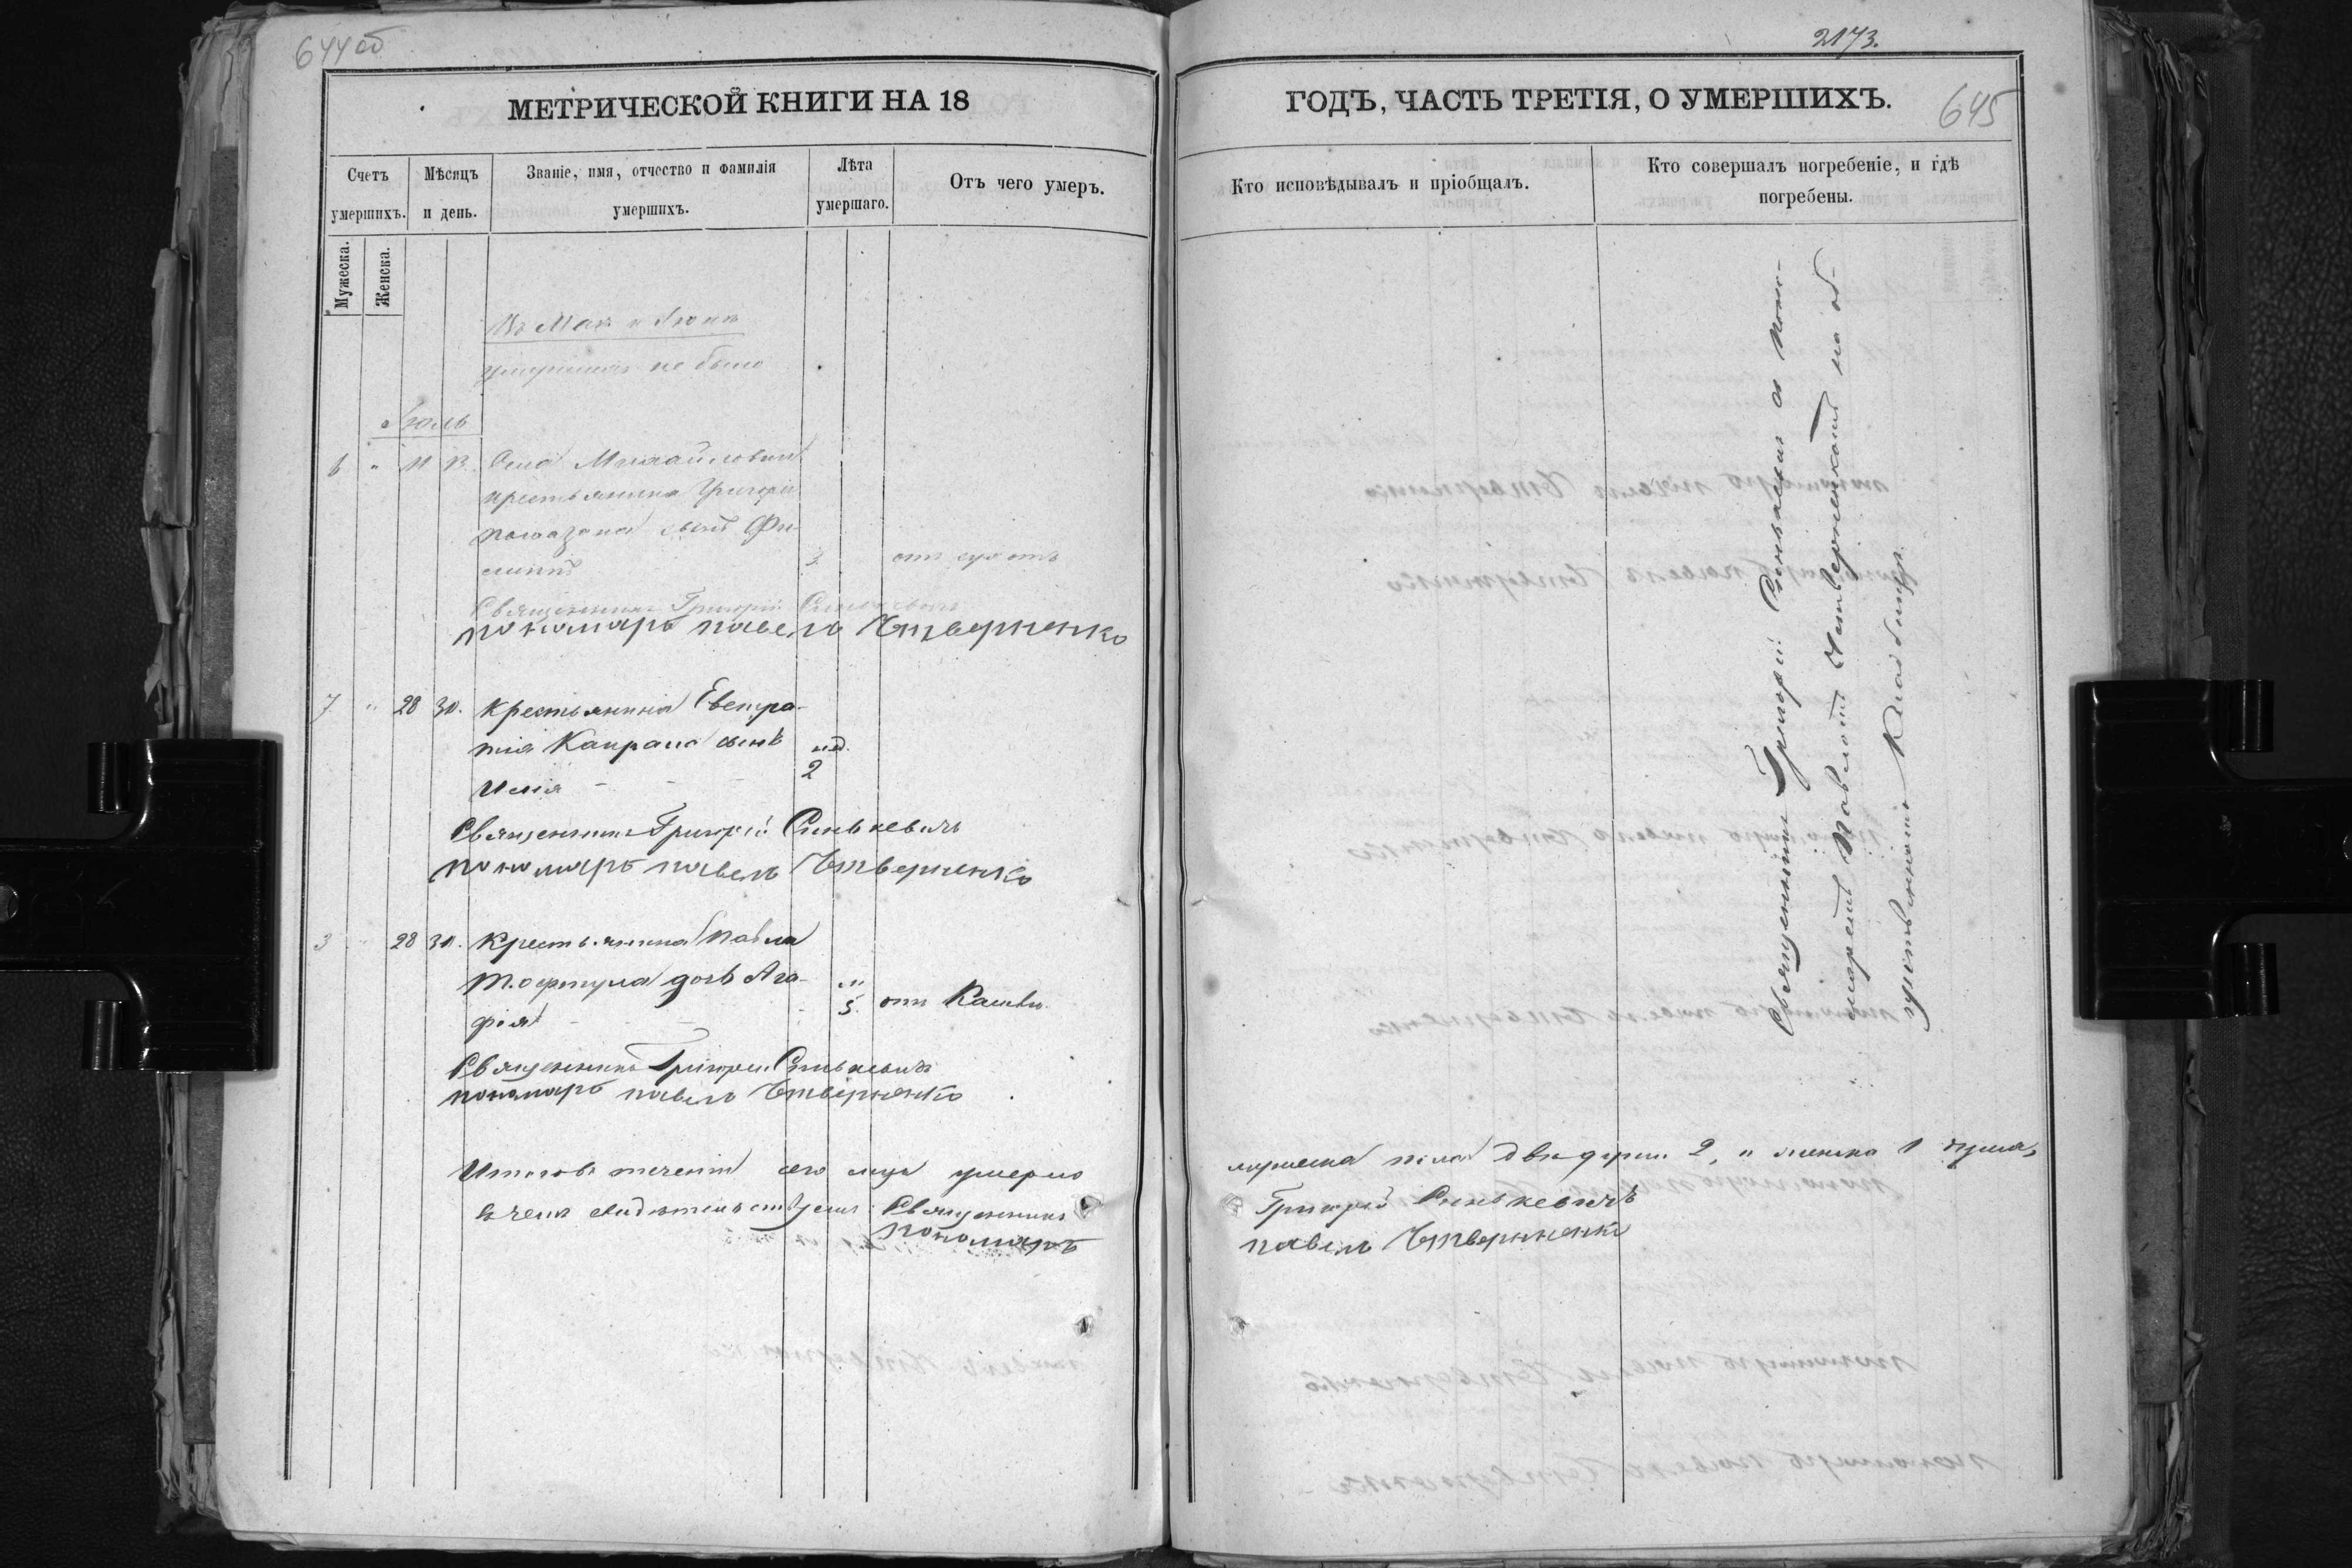 644 об
МЕТРИЧЕСКОЙ КНИГИ НА 18
Счетъ умершихъ.
Мѣсяцъ и день.
Званіе, имя, отчество и фамилія умершихъ.
Лѣта умершаго.
Отъ чего умеръ.
Мужеска.
Женска.
Въ Маѣ и Іюнѣ
умершихъ не было
Іюль
6 " 11 13. Села Михайловки
крестьянина Григорія
сынъ Фи-
липпъ 3.
Священникъ Григорій Синькевичъ
пономарь павелъ Чтверненко
7 " 28 30. Крестьянина Евстра-
тія Капрана сынъ нед.
Илія - - - 2
Священникъ Григорій Синькевичъ
пономарь павелъ Чтверненко
3 28 30. Крестьянина Павла
дочь Ага- "
фія - - - 5. отъ Кашлю.
Священникъ Григорій Синькевичъ
пономарь павелъ Чтверненко
Итого въ теченіи сего м-ца умерло
въ чемъ свидѣтельствуемъ: Священникъ
Пономарь
2173.
645
ГОДЪ, ЧАСТЬ ТРЕТІЯ, О УМЕРШИХЪ.
Кто исповѣдывалъ и пріобщалъ.
Кто совершалъ погребеніе, и гдѣ
погребены.
Священникъ Григорій Синькевичъ съ Поно-
маремъ Павломъ Четверненкомъ на об-
щественномъ Кладбищѣ.
мужеска пола двѣ души 2, и женска 1 душа,
Григорій Синькевичъ
павелъ Чтверненко